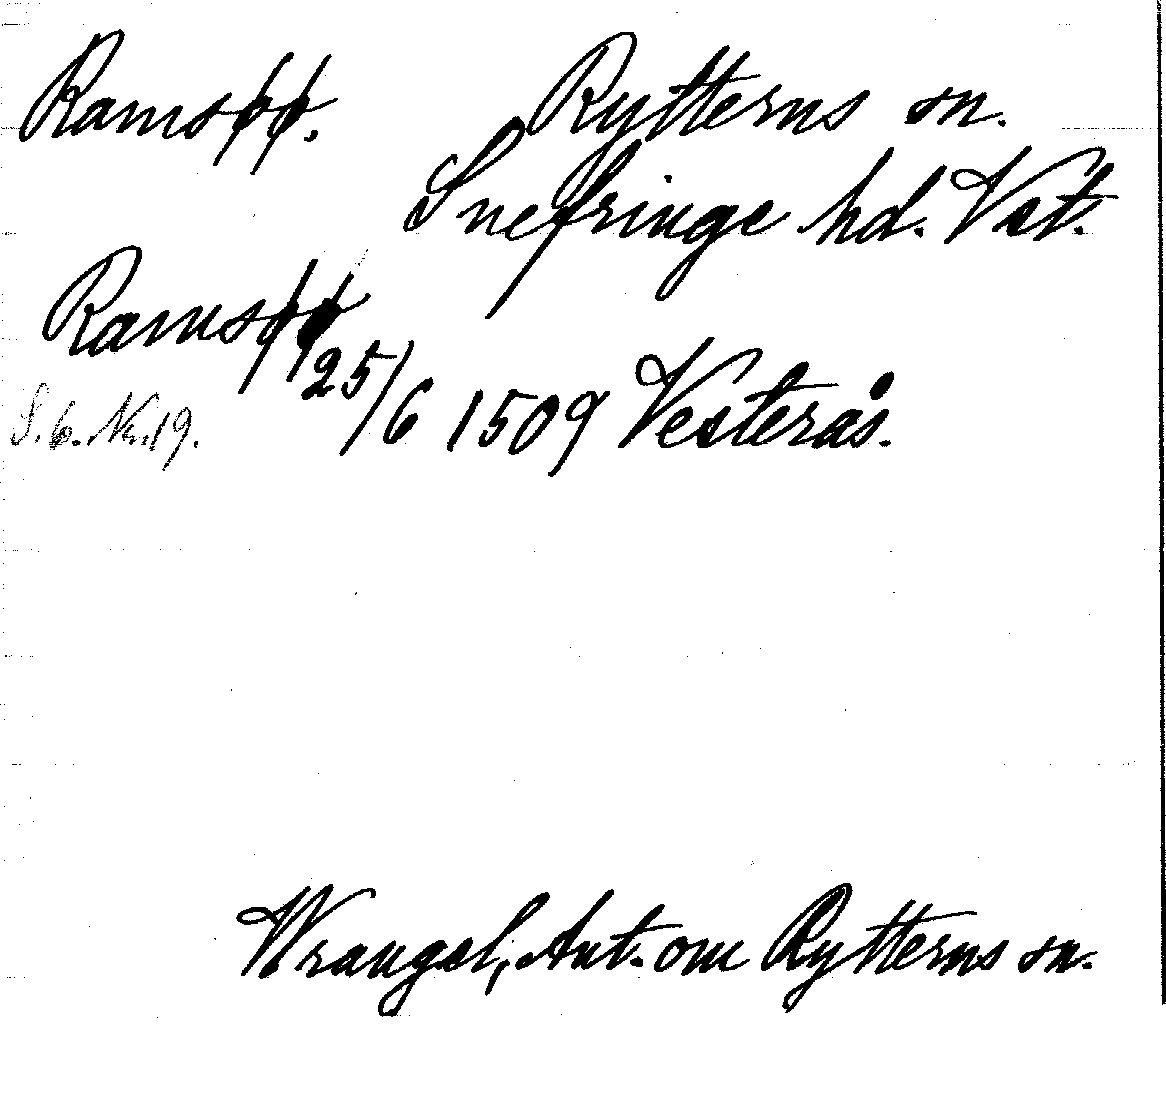 Ramspp. Rytterns sn.
Snefringe hd. Vst.
Ramspp 25/6 1509 Vesterås.
S. 6. No. 19.
Wrangel, Ant. om Rytterns sn.